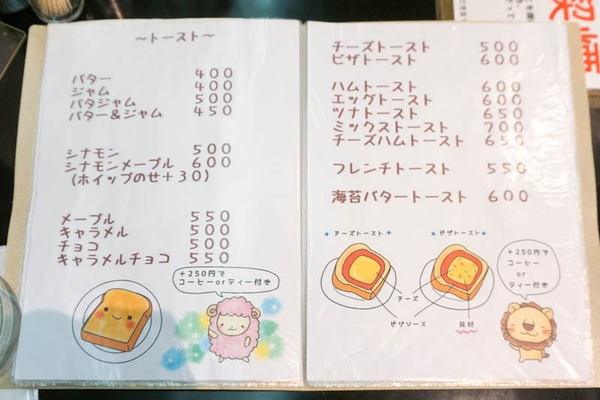 ～トースト～
バター 400
ジャム 400
バタジャム 500
バター＆ジャム 450
シナモン 500
シナモンメープル 600
(ホイップのせ+30)
メープル 550
キャラメル 500
チョコ 500
キャラメルチョコ 550
+250円で
コーヒーorティー付き
チーズトースト 500
ピザトースト 600
ハムトースト 600
エッグトースト 600
ツナトースト 650
ミックストースト 700
チーズハムトースト 650
フレンチトースト 550
海苔バタートースト 600
★チーズトースト★
★ピザトースト★
チーズ
ピザソース
具材
+250円で
コーヒー
or
ティー付き